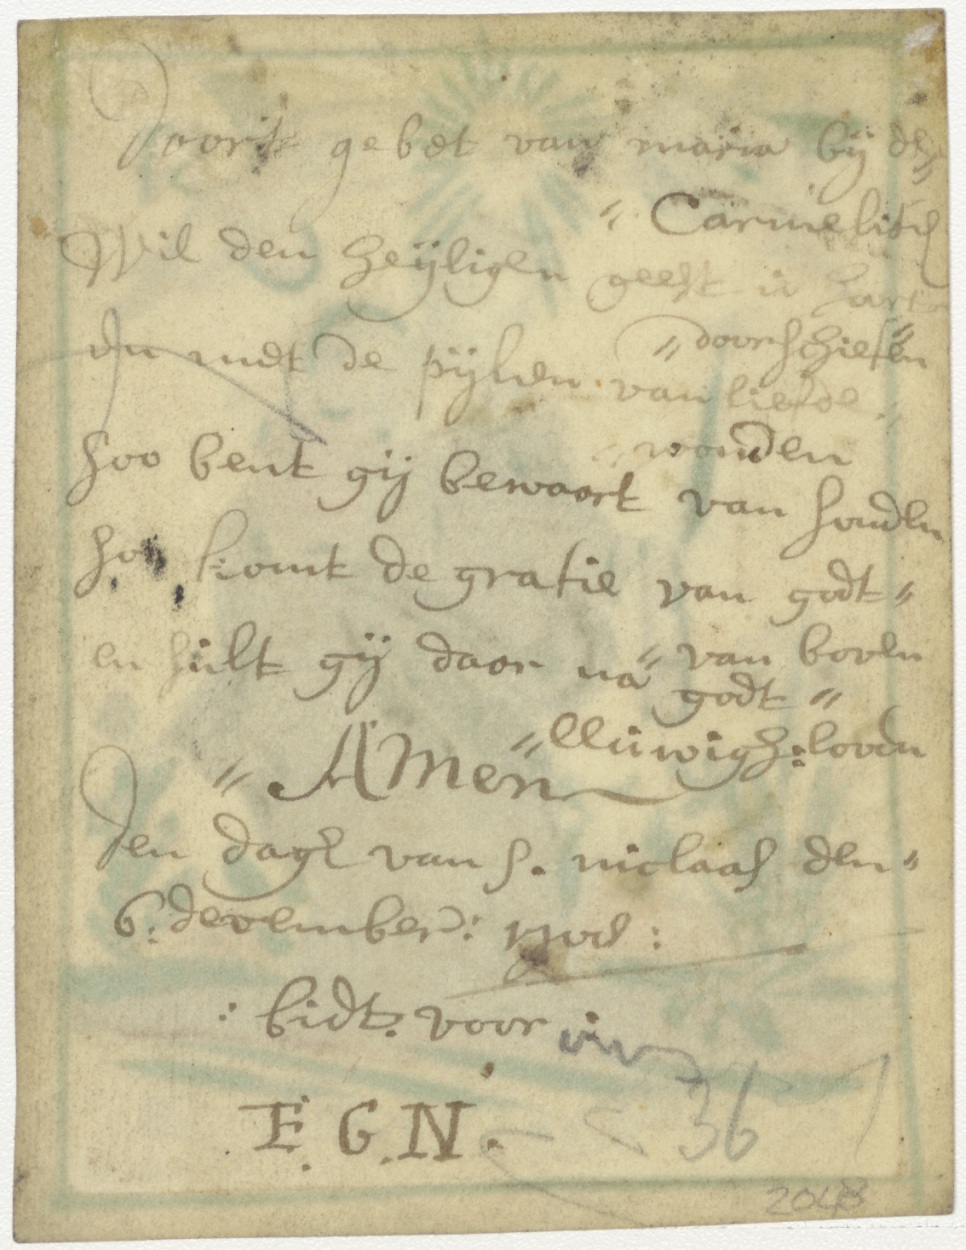 Door't gebet van maria bij de
" Carmelite
Wil den heijligen geest u hart
" doorschiesen
En met de pijlen van liefde "
" wonden
Soo bent gij bewaert van sonden
Soo komt de gratie van godt "
" van boven
en sult gij daer na
godt "
" Eeuwigh: loven
" AMen
Den dagh van S. niclaas den "
6. december:
: bidt. voor
E. G. N.
36
2048